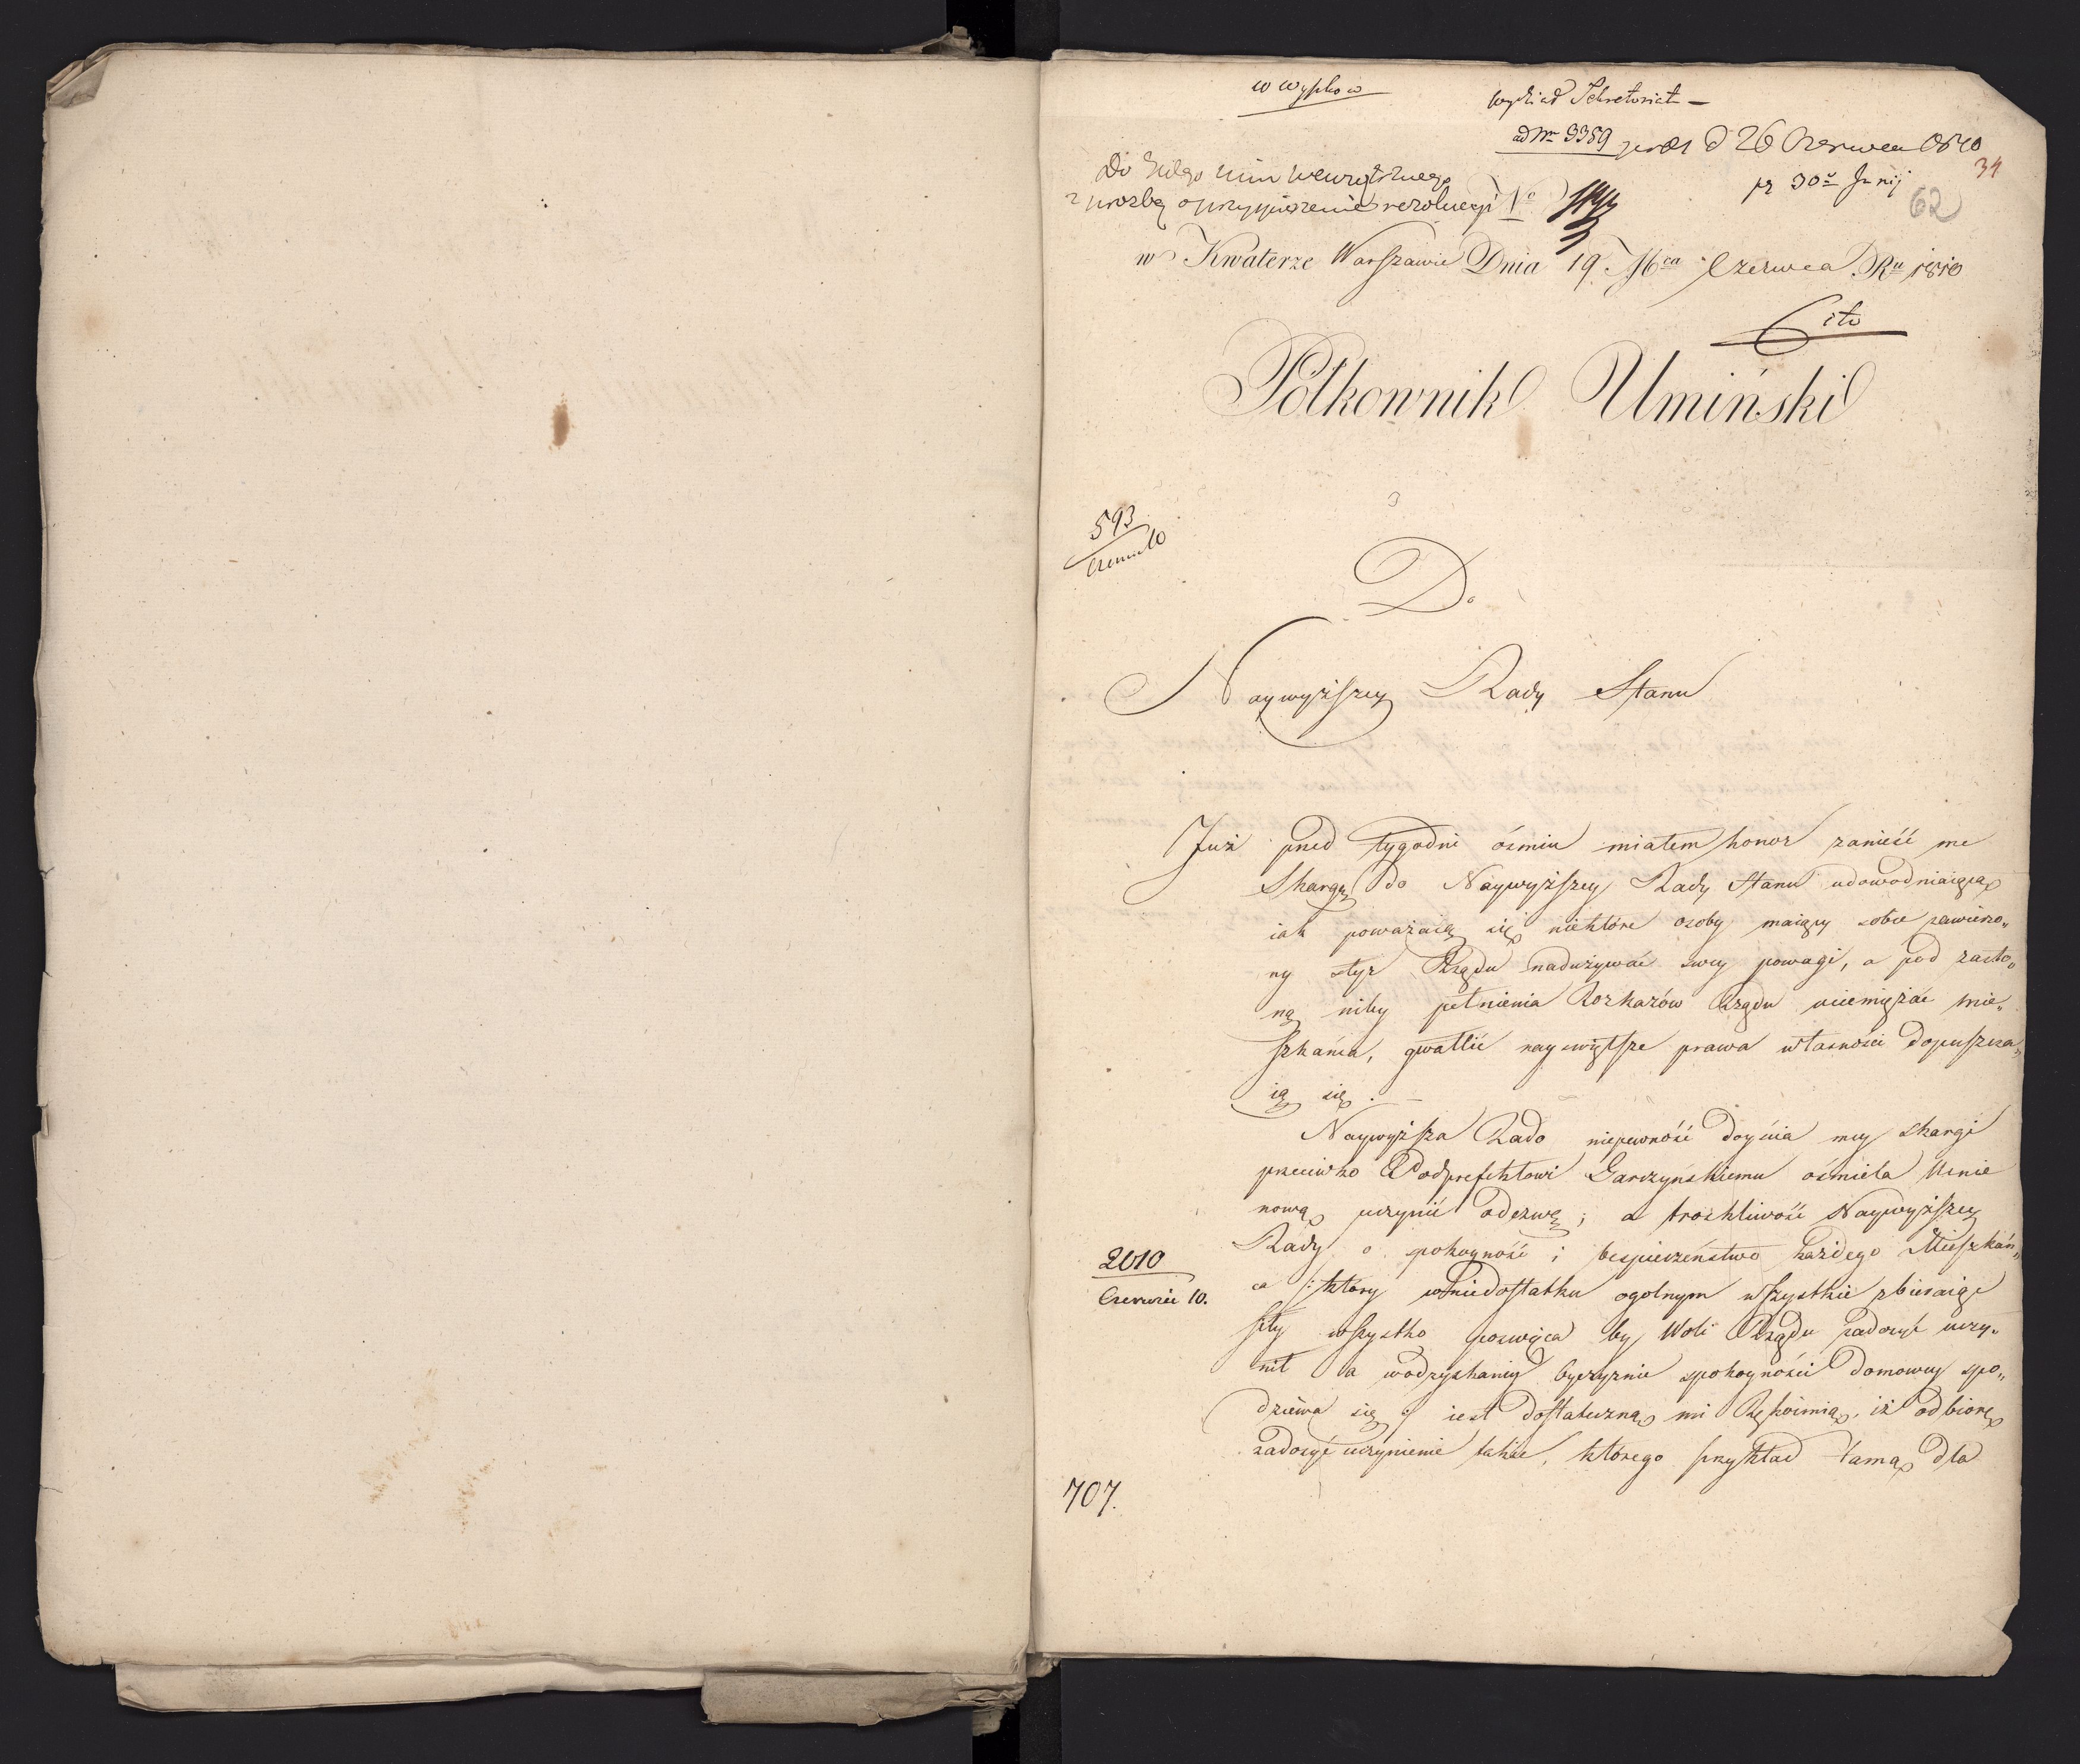 Wydział Sekretariat —
ad Nr 3359 d 26 Czerwca 1810
34
pr 30 Junij
62
Do
z prozbą o przyspieszenie rezolucyi No
w Kwaterze Warszawie Dnia 19. Mca Czerwca Ru 1810
Cito
Półkownik Umiński
593
Czerwiec 10
Do
Naywyższey Rady Stanu
Już przed tygodni ósmiu miałem honor zanieść me
Skargę do Naywyższey Rady Stanu udowodniaiącą
iak poważaią się niektóre osoby maiący sobie zawierzo„
ny styr Rządu nadużywać swey powagi, a pod zasło„
ną niby pełnienia Rozkazów Rządu uciemiężać mie„
szkańca, gwałcić nayświętsze prawa własności dopuszcza„
ią się. —
Naywyższa Rado niepewność doyścia mey skargi
przeciwko Podprefektowi Garczyńskiemu ośmiela Mnie
nową uczynić odezwę; a troskliwość Naywyższey
Rady o spokoyność i bespieczeństwo każdego Mieszkań„
ca /: który w niedostatku ogolnym wszystkie zbieraiąc
siły wszystko poswięca by Woli Rządu zadosyć uczy„
nił a w odzyskaniey Oyczyznie spokoyności Domowey spo„
dziewa się :/ iest dostateczną mi Rękoimią, iż odbiorę
zadosyć uczynienie takie, którego przykład tamą dla
2010
Czerwiec 10.
707.